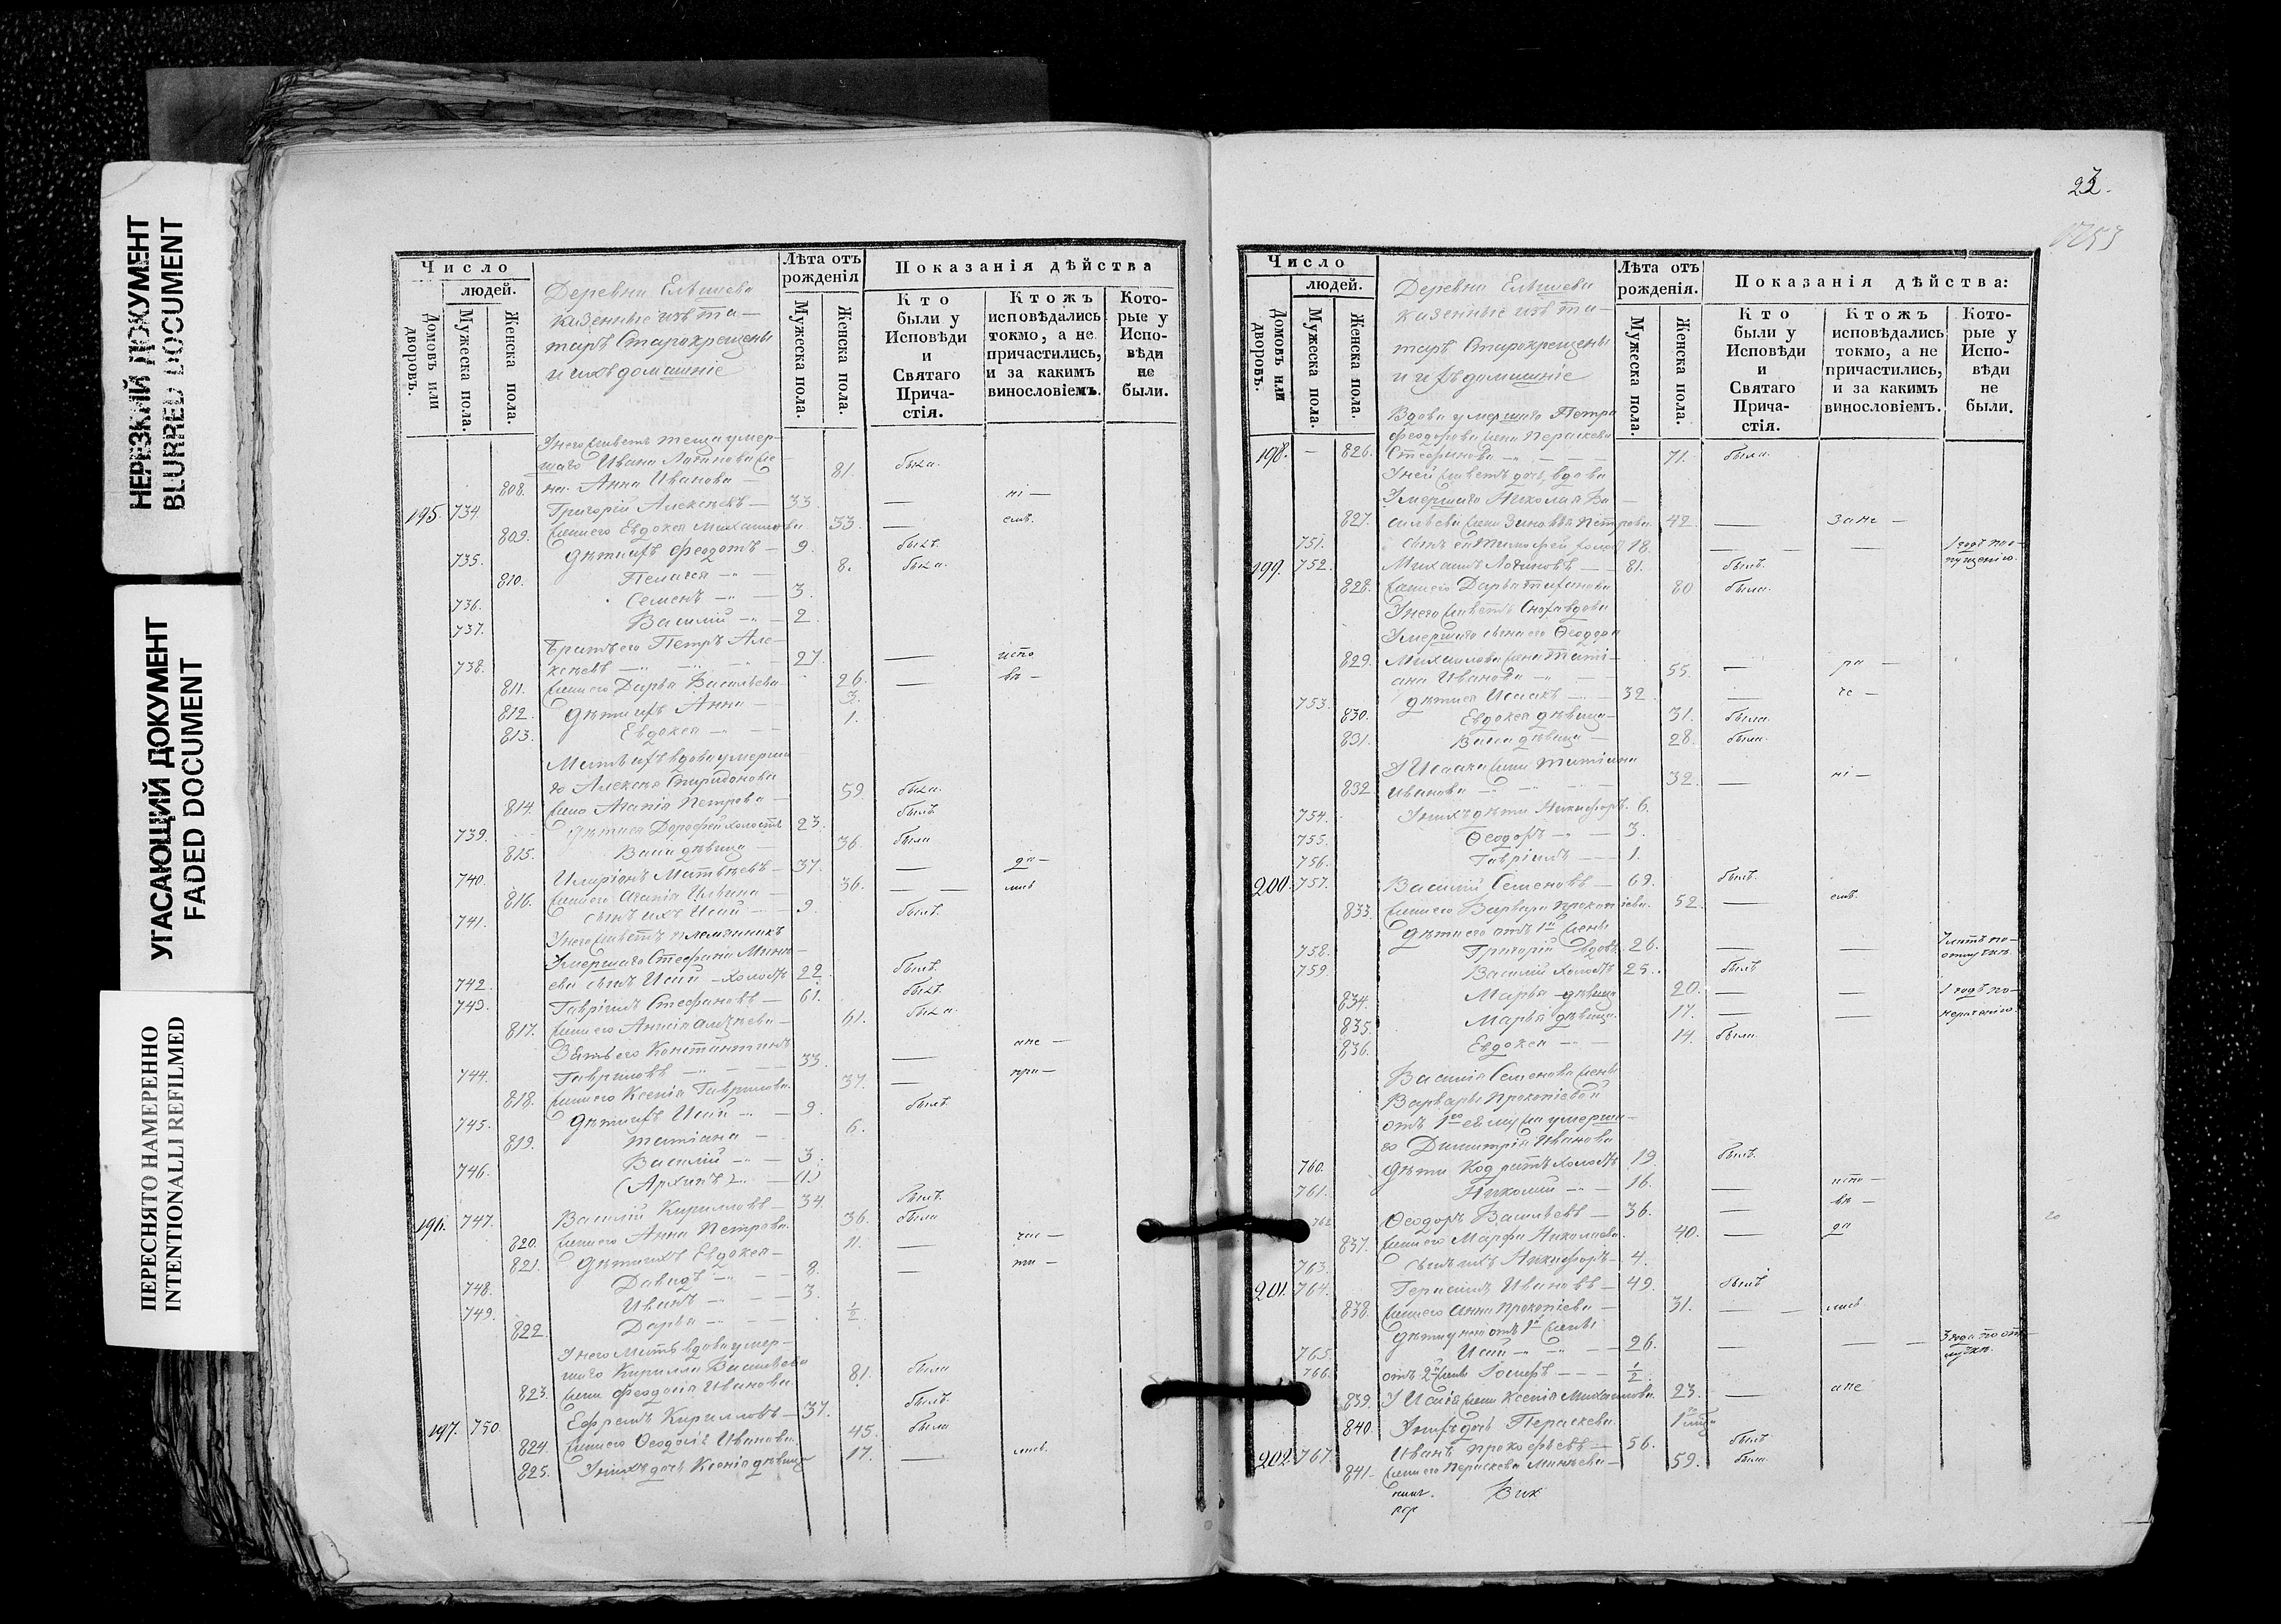 НЕРЕЗКИЙ ДОКУМЕНТ
BLURRED DOCUMENT
УГАСАЮЩИЙ ДОКУМЕНТ
FADED DOCUMENT
ПЕРЕСНЯТО НАМЕРЕННО
INTENTIONALLI REFILMED
Число
людей.
Домовъ или дворовъ.
Мужеска пола.
Женска пола.
Деревни Елышева
казенные изъ та-
таръ Старокрещены
и ихъ домашніе
Лѣта отъ рожденія
Мужеска пола.
Женска пола.
Показанія дѣйства
Кто были у Исповѣди и Святаго Причастія.
Ктожъ исповѣдались токмо, а не причастились, и за какимъ винословіемъ.
Которые у Исповѣди не были.
У него живетъ теща умер-
шаго Ивана Логинова же-
808. на Анна Иванова 81. была.
195. 734. Григорій Алексѣевъ 33. — ні —
809. жена его Евдокея Михайлова 33. — емъ.
735. Дѣти ихъ Феодотъ 9. былъ.
810. Пелагея 8. была.
736. Семенъ 3.
737. Василій 2.
Братъ его Петръ Але-
738. ксѣевъ 27. — испо
811. жена его Дарья Васильева 26. — вѣ —
812. Дѣти ихъ Анна 3.
813. Евдокея 1.
Мать ихъ вдова умерша-
го Алексѣя Спиридонова
814. жена Агапія Петрова 59. была.
739. Дѣти ея Дорофей холостъ 23. былъ.
815. Васа дѣвица 36. была
740. Иларіонъ Матвѣевъ 37. — да —
816. жена его Агапія Ильина 36. — лись
741. сынъ ихъ Исай 9. былъ.
У него живетъ племянникъ
Умершаго Стефана Мине-
742. ева сынъ Исай холостъ 22. былъ.
743. Гавріилъ Стефановъ 61. былъ.
817. жена его Анисія Алексѣева 61. была.
Зять его Константинъ
744. Гавриловъ 33. — ане —
818. жена его Ксенія Гаврилова 37. — при —
745. Дѣти ихъ Исай 9. былъ.
819. Татіана 6.
746. Василій 3.
(Архипъ) (1.)
196. 747. Василій Кирилловъ 34. былъ.
820. жена его Анна Петрова 36. была
821. Дѣти ихъ Евдокея 11. — час —
748. Давидъ 8. — ти —
749. Иванъ 3.
822. Дарья ½.
У него Мать вдова умер-
шаго Кирилла Васильева
823. жена Феодосія Иванова 81. была
197. 750. Ефремъ Кирилловъ 37. былъ.
824. жена его Ѳеодосія Иванова 45. была
825. У нихъ дочь Ксенія дѣвица 17. — лись.
23.
1253
Число
людей.
Домовъ или дворовъ.
Мужеска пола.
Женска пола.
Деревни Елышева
казенные изъ та-
таръ Старокрещены
и ихъ домашніе
Лѣта отъ рожденія.
Мужеска пола.
Женска пола.
Показанія дѣйства:
Кто были у Исповѣди и Святаго Причастія.
Ктожъ исповѣдались токмо, а не причастились, и за какимъ винословіемъ.
Которые у Исповѣди не были.
Вдова умершаго Петра
Феодорова жена Параскева
198. — 826. Стефанова 71. была.
У ней живетъ дочь, вдова
Умершаго Николая Ва-
827. сильева жена Зиновья Петрова 42. — зане —
751. сынъ ея Тимофей холостъ 18. — — 1 годъ по о-
199. 752. Михаилъ Логиновъ 81. былъ. пущенію.
828. жена его Дарья 80 была.
У него живетъ Сноха вдова
Умершаго сына его Ѳеодора
829. Михайлова жена Тати-
ана Иванова 55. — ра —
753. Дѣти ея Исаакъ 32. — че —
830. Евдокея дѣвица 31. была.
831. Васа дѣвица 28. была.
У Исаака жена Татіана
832. Иванова 32. — ні —
754. У нихъ дѣти Никифоръ 6.
755. Ѳеодоръ 3.
756. Гавріилъ 1.
200. 757. Василій Семеновъ 69. былъ.
833. жена его Варвара Прокопіева 52. — емъ.
Дѣти его отъ 1й жены
758. Григорій вдовъ 26. — — 7 лѣтъ по
759. Василій холостъ 25. былъ отлучкѣ
834. Марья дѣвица 20. — — 1 годъ по
835. Марья дѣвица 17. — — нераченію.
836. Евдокея 14. была.
Василія Семенова жены
Варвары Прокопіевой
отъ 1го ея мужа умерша-
го Димитрія Иванова
760. Дѣти Кодратъ холостъ 19. былъ.
761. Николай 16. — испо —
762. Ѳеодоръ Васильевъ 36. — вѣ —
837. жена его Марфа Николаева 40. — да
763. сынъ ихъ Никифоръ 4.
201. 764. Герасимъ Ивановъ 49. былъ
838. жена его Анна Прокопіева 31. — лись
Дѣти у него отъ 1й жены
765. Исай 26. — — 3 года по от-
766. отъ 2й жены Іосифъ ½. лучкѣ.
839. У Исаія жена Ксенія Михайлова 23. — апе
840. У нихъ дочь Параскева
202. 767. Иванъ Прокофьевъ 56. былъ
841. жена его Параскева Минѣева 59. была.